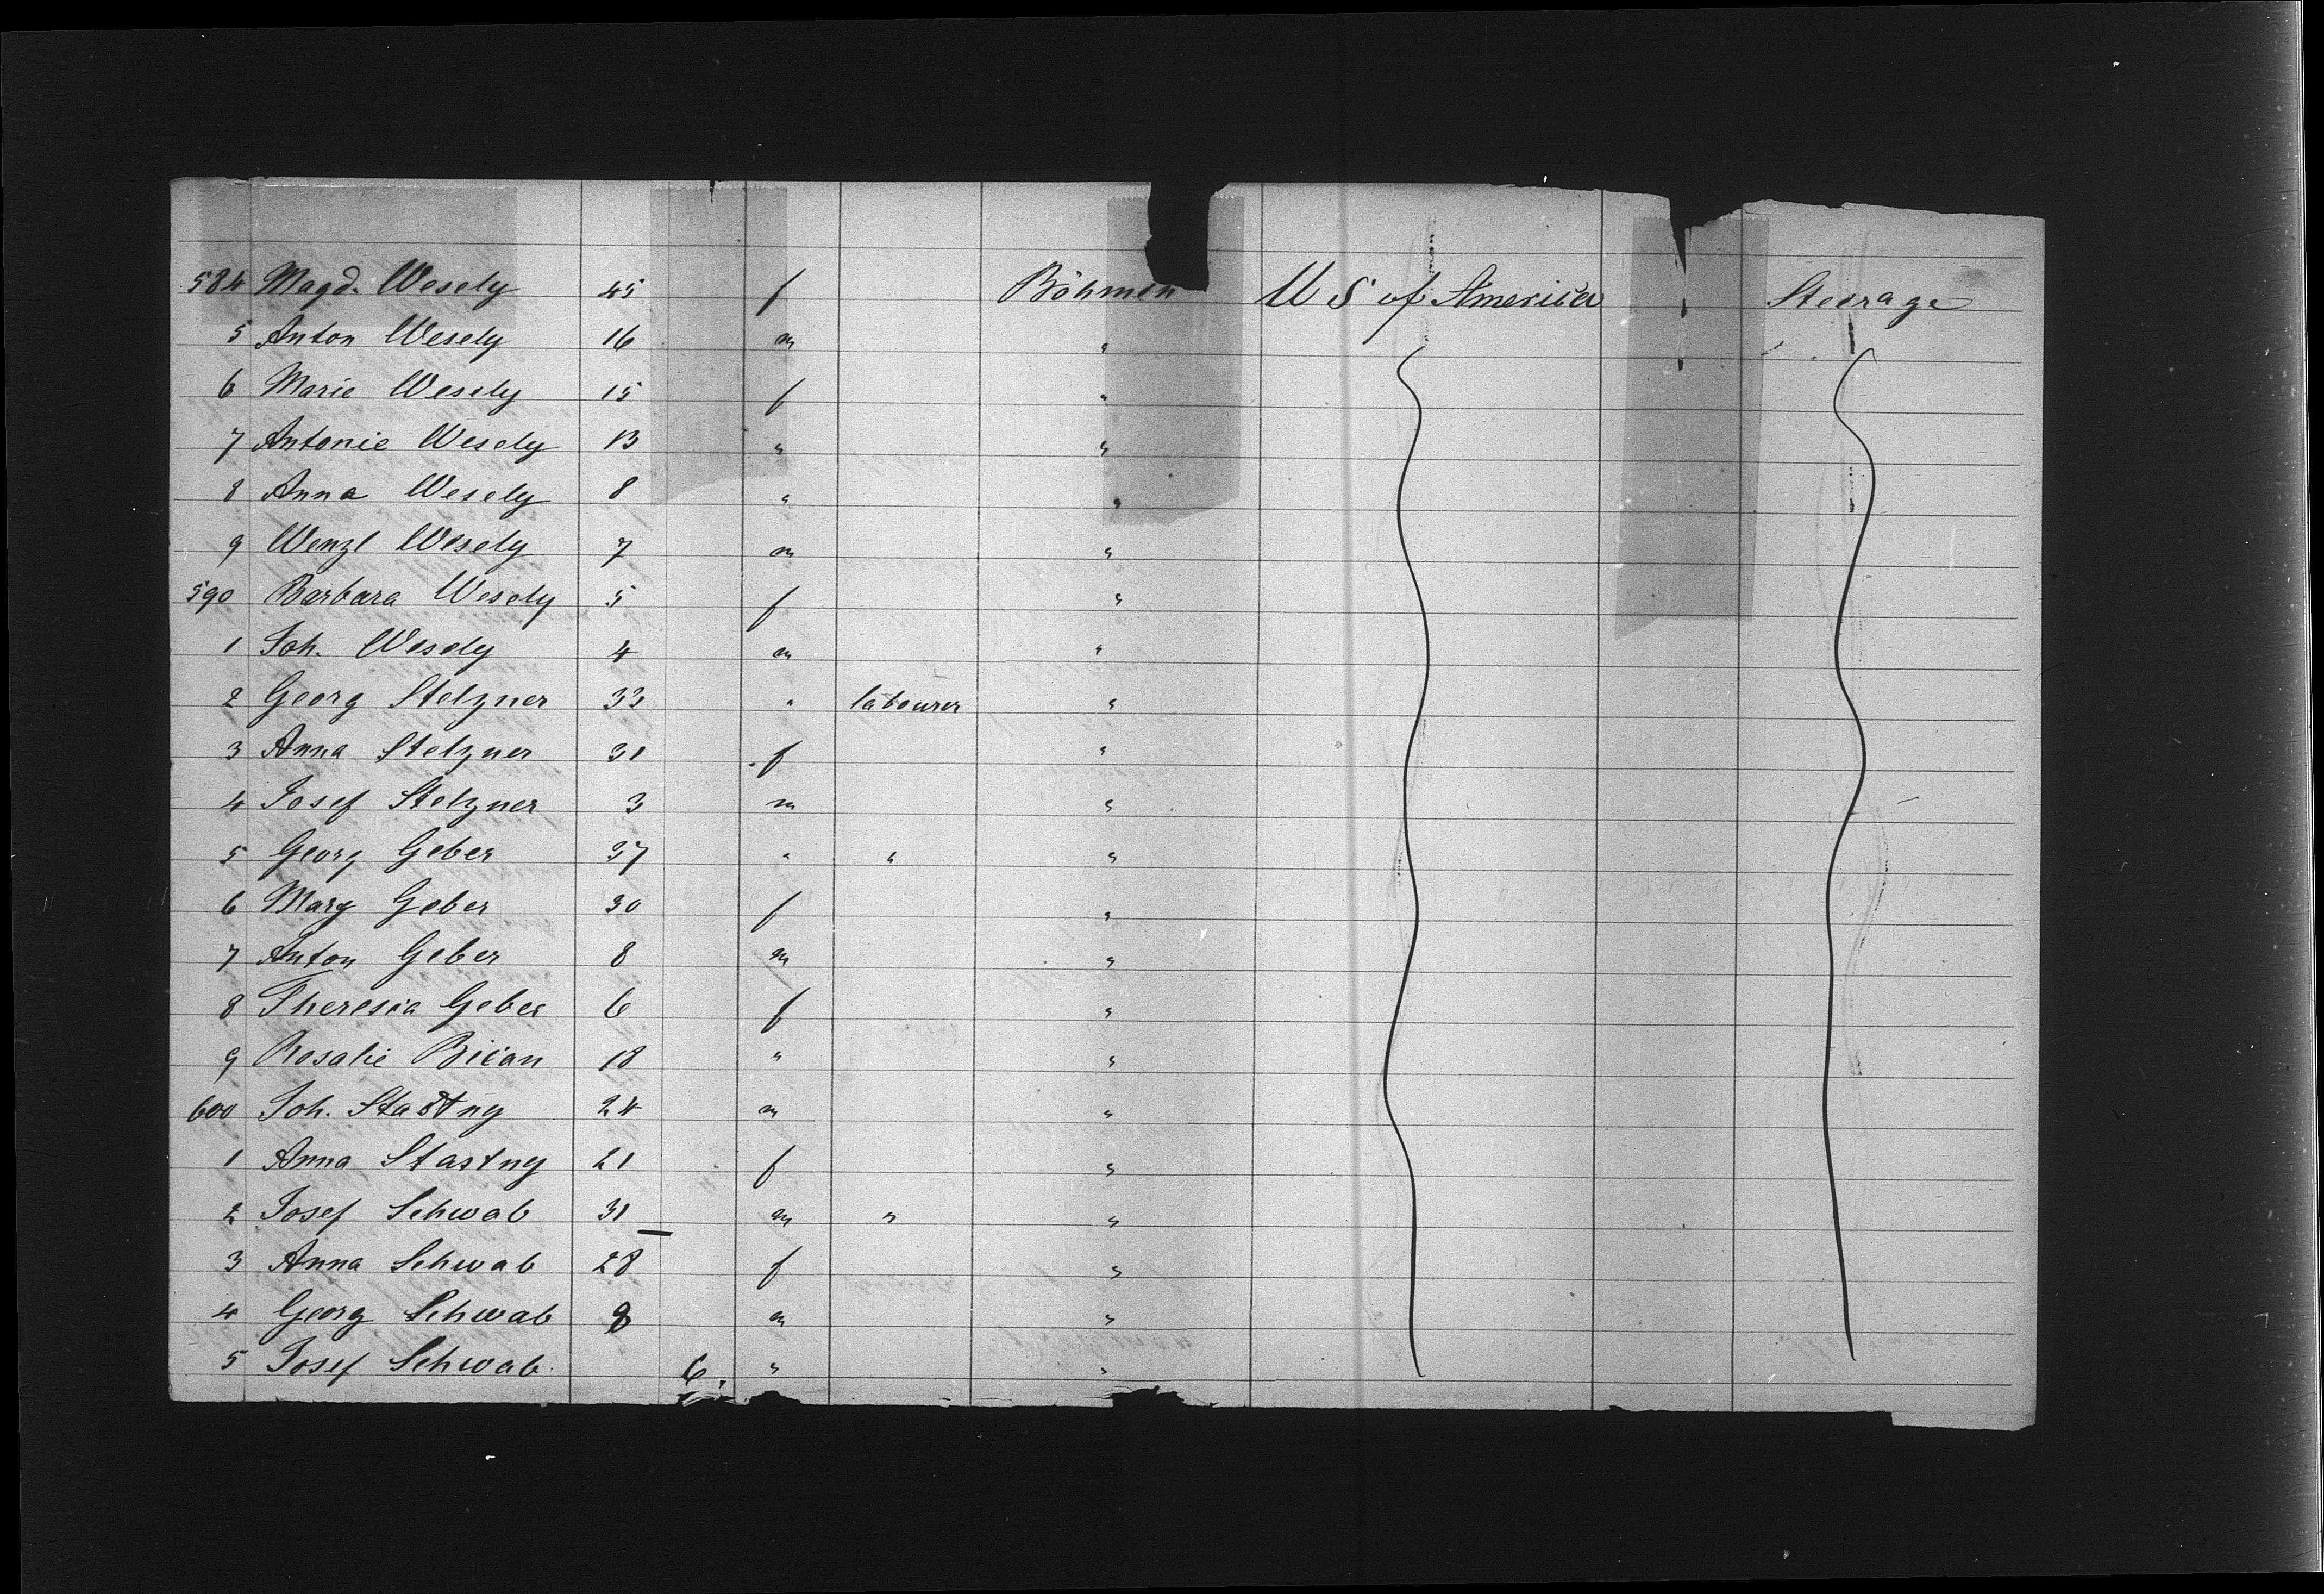 584 Magd. Wesely 45 f Böhmen U S of America Steerage
5 Anton Wesely 16 m "
6 Marie Wesely 15 f "
7 Antonie Wesely 13 " "
8 Anna Wesely 8 " "
9 Wenzl Wesely 7 m "
590 Barbara Wesely 5 f "
1 Joh. Wesely 4 m "
2 Georg Stelzner 33 " labourer "
3 Anna Stelzner 31 f "
4 Josef Stelzner 3 m "
5 Georg Geber 37 " " "
6 Marg Geber 30 f "
7 Anton Geber 8 m "
8 Theresia Geber 6 f "
9 Rosalie Bican 18 " "
600 Joh. Stastny 24 m "
1 Anna Stastny 21 f "
2 Josef Schwab 31 m " "
3 Anna Schwab 28 f "
4 Georg Schwab 8 m "
5 Josef Schwab 6. " "